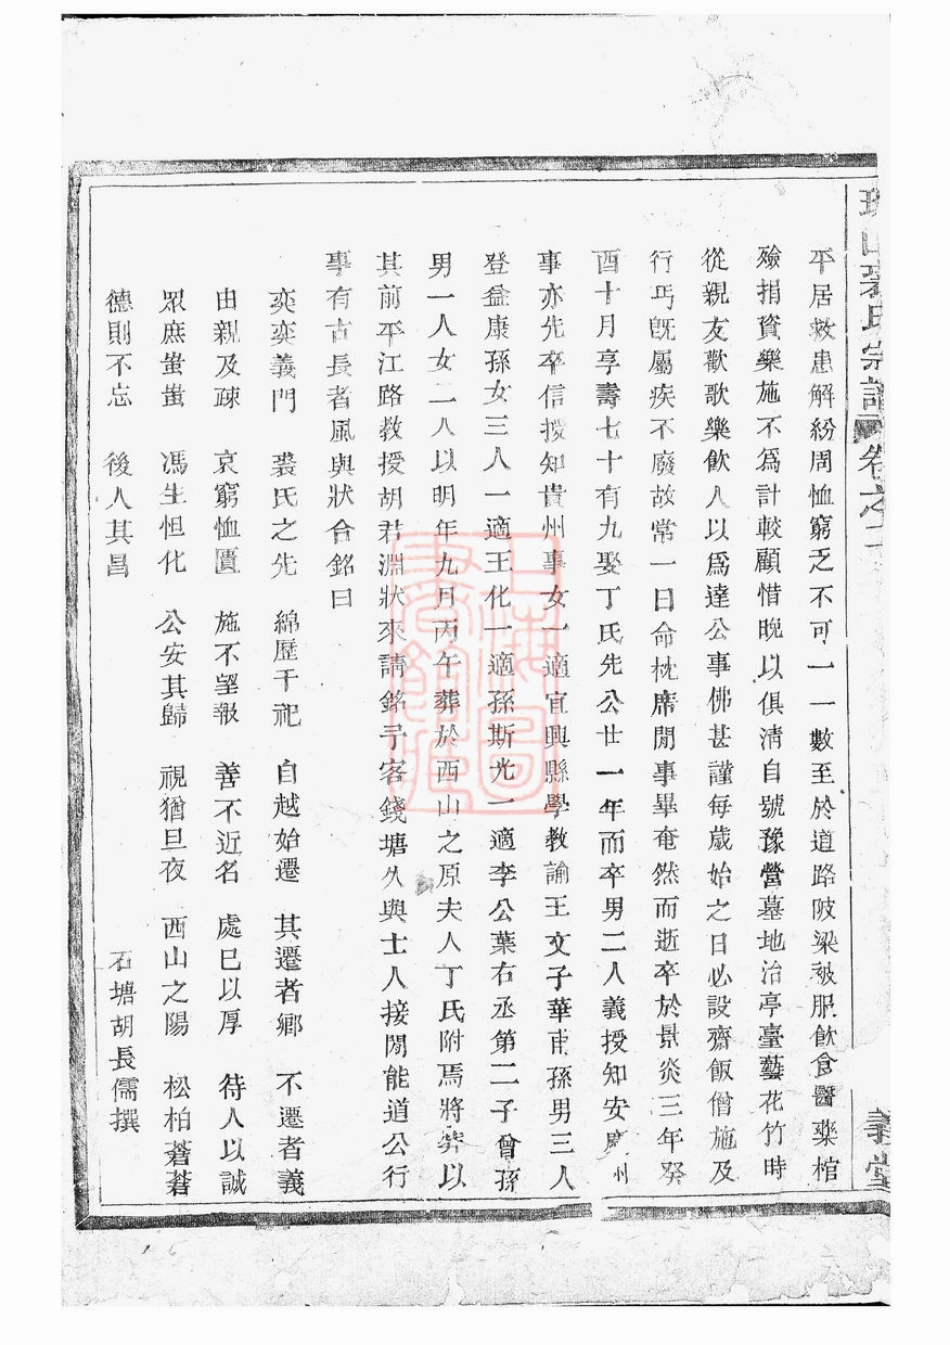 山裘氏宗譜 卷之一 義堂
平居救患解紛周恤窮乏不可一一數至於道路陂梁被服飲食醫藥棺
殮捐資樂施不爲計較顧惜晚以俱淸自號豫營墓地治亭臺藝花竹時
從親友歡歌樂飮人以爲達公事佛甚謹每歲始之日必設齋飯僧施及
行丐旣屬疾不廢故常一日命枕席閒事畢奄然而逝卒於景炎三年癸
酉十月享壽七十有九娶丁氏先公廿一年而卒男二人義授知安州
事亦先卒信授知貴州事女一適宜興縣學教諭王文子華甫孫男三人
登益康孫女三人一適王化一適孫斯光一適李公葉右丞第二子曾孫
男一人女二人以明年九月丙午葬於西山之原夫人丁氏附焉將葬以
其前平江路教授胡君淵狀來請銘予客錢塘久與士人接聞能道公行
事有古長者風與狀合銘曰
奕奕義門 裘氏之先 綿歷千祀 自越始遷 其遷者鄉 不遷者義
由親及疎 哀窮恤匱 施不望報 善不近名 處已以厚 待人以誠
眾庶蚩蚩 馮生怛化 公安其歸 視猶旦夜 西山之陽 松柏蒼蒼
德則不忘 後人其昌 石塘胡長儒撰
上海圖書館藏